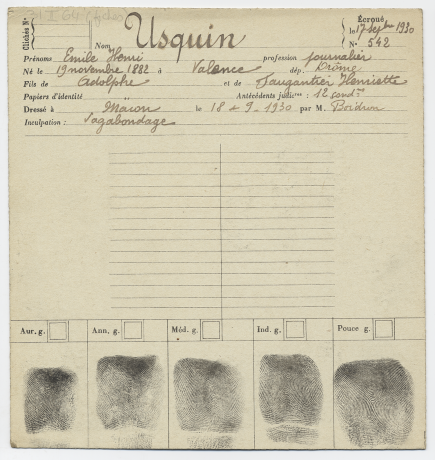 Clichés N°
Nom Usquin
Écroué
le 17 sepbre 1930
N° 542
Prénoms Emile Henri profession journalier
Né le 19 novembre 1882 à Valence dép. Drôme
Fils de Adolphe et de Faugantier Henriette
Papiers d'identité Antécédents judicres : 12 condns
Dressé à Macon le 18-9-1930 par M. Boidron
Inculpation : Vagabondage
Aur. g. Ann. g. Méd. g. Ind. g. Pouce g.